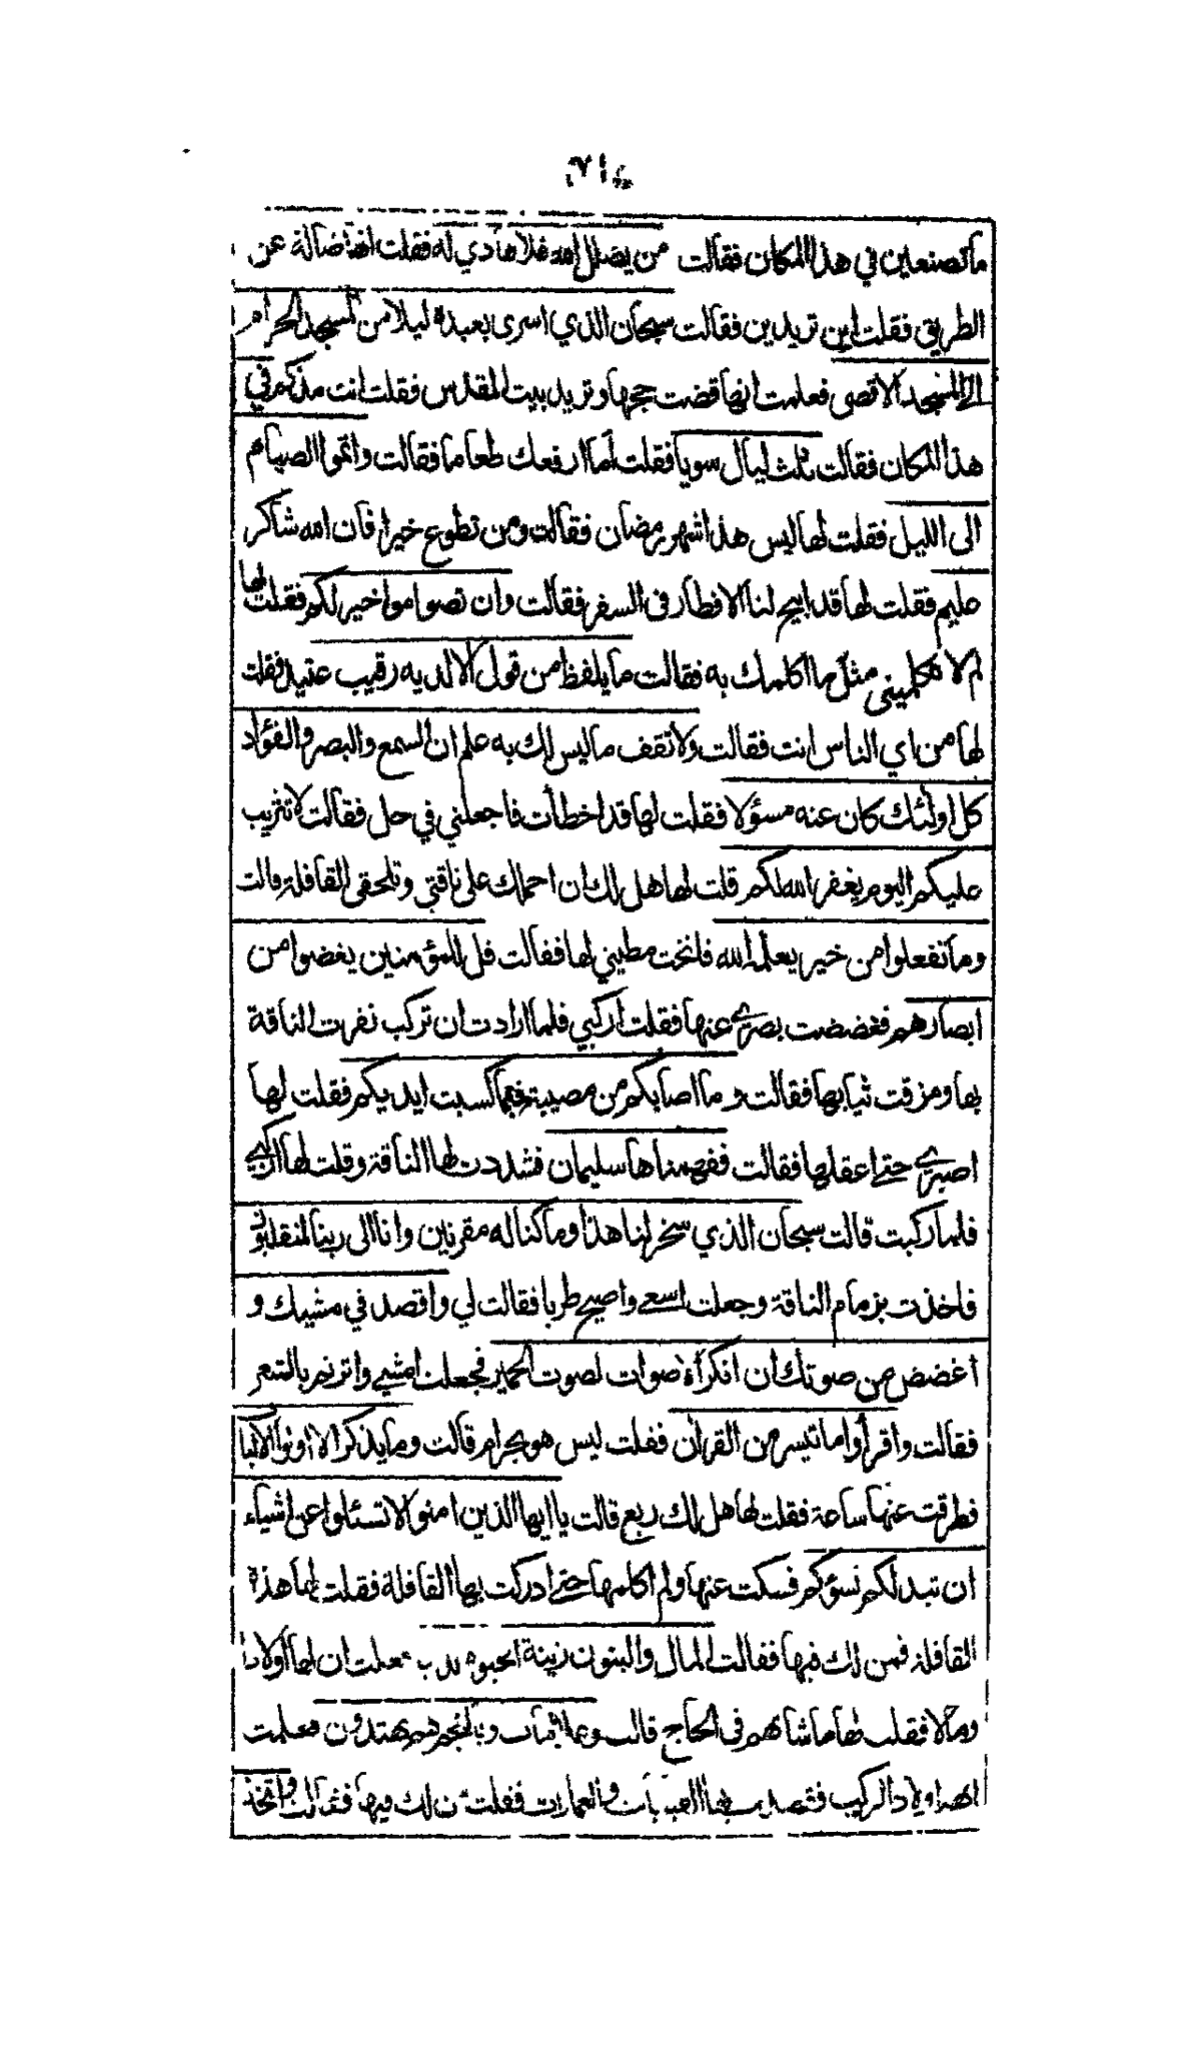 ما تصنعين في هذا المكان فقالت من يضلل الله فلا هادي له فقلت انها ضالة عن
الطريق فقلت اين تريدين فقالت سبحان الذي اسرى بعبده ليلا من المسجد الحرام
الى المسجد الاقصى فعلمت انها قضت حجها وتريد بيت المقدس فقلت انت مذ كم في
هذا المكان فقالت ثلث ليال سويا فقلت أما ارفعك طعاما فقالت واتموا الصيام
الى الليل فقلت لها ليس هذا شهر رمضان فقالت ومن تطوع خيرا فان الله شاكر
عليم فقلت لها قد ابيح لنا الافطار في السفر فقالت وان تصواموا خير لكم فقلت لها
لم لا تكلميني مثل ما اكلمك به فقالت ما يلفظ من قول الا لديه رقيب عتيد فقلت
لها من اي الناس انت فقالت ولا تقف ما ليس لك به علم ان السمع والبصر والفؤاد
كل اولئك كان عنه مسؤلا فقلت لها قد اخطأت فاجعلني في حل فقالت لا تثريب
عليكم اليوم يغفر الله لكم قلت لها هل لك ان احملك على ناقتي وتلحقي القافلة قالت
وما تفعلوا من خير يعلمه الله فانخت مطيتي لها فقالت قل للمؤمنين يغضوا من
ابصارهم فغضضت بصري عنها فقلت اركبي فلما ارادت ان تركب نفرت الناقة
بها ومزقت ثيابها فقالت وما اصابكم من مصيبة فبما كسبت ايديكم فقلت لها
اصبري حتى اعقلها فقالت ففهمناها سليمان فشددت لها الناقة وقلت لها اركبي
فلما ركبت قالت سبحان الذي سخر لنا هذا وما كنا له مقرنين وانا الى ربنا لمنقلبون
فاخذت بزمام الناقة وجعلت اسعى واصيح طربا فقالت لي واقصد في مشيك و
اغضض من صوتك ان انكر الاصوات لصوت الحمير فجعلت امشي واترنم بالشعر
فقالت واقرأوا ما تيسر من القران فقلت ليس هو بحرام قالت وما يذكر الا اولوا الالبا
فطرقت عنها ساعة فقلت لها هل لك ربع قالت يا ايها الذين امنوا لا تسئلوا عن اشياء
ان تبد لكم تسؤكم فسكت عنها ولم اكلمها حتى ادركت بها القافلة فقلت لها هذه
القافلة فمن لك فيها فقالت المال والبنون زينة الحيوة فعلمت ان لها اولادا
ومالا فقلت لها ما شانهم في الحاج قالت وعلامات وبالنجم هم يهتدون فعلمت
انهم اولاد الركب فقصدت بها القبابات والعمارات فقلت من لك فيها فقالت واتخذ